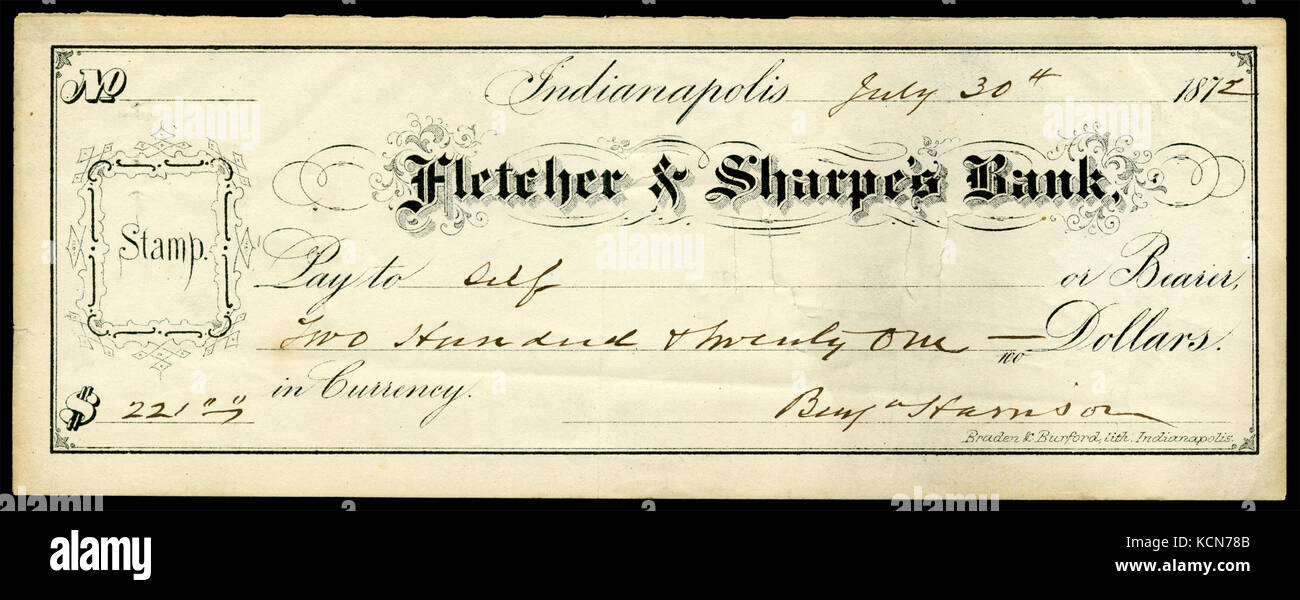 No Indianapolis July 30th 1872
Fletcher & Sharpe's Bank,
Stamp.
Pay to Self or Bearer,
Two Hundred & Twenty One — /100 Dollars.
in Currency.
$ 221 00
Benja Harrison
Braden & Burford, lith. Indianapolis.
alamy
alamy
Image ID: KCN78B
www.alamy.com